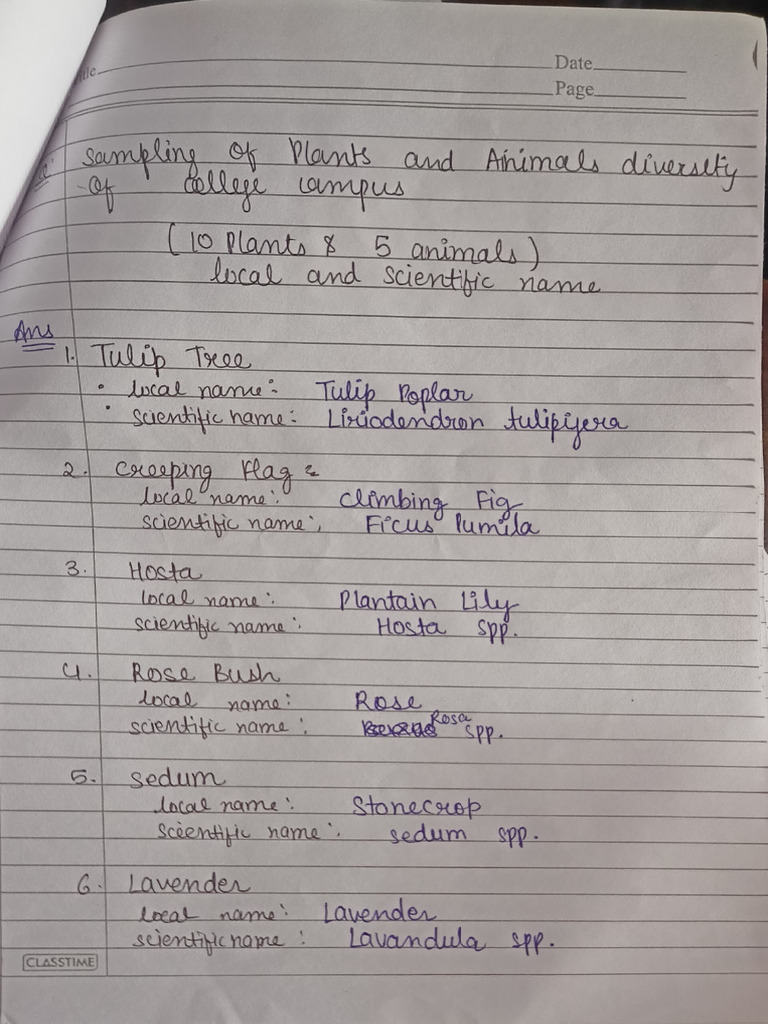 Date
Page
Sampling of Plants and Animals diversity
of college campus
(10 Plants & 5 animals)
local and scientific name
Ans
1. Tulip Tree
• local name: Tulip Poplar
• scientific name: Liriodendron tulipifera
2. Creeping Flag:
local name: Climbing Fig
scientific name: Ficus Pumila
3. Hosta
local name: Plantain Lily
scientific name: Hosta spp.
4. Rose Bush
local name: Rose
scientific name: Rosa spp.
5. Sedum
local name: Stonecrop
scientific name: sedum spp.
6. Lavender
local name: Lavender
scientific name: Lavandula spp.
CLASSTIME